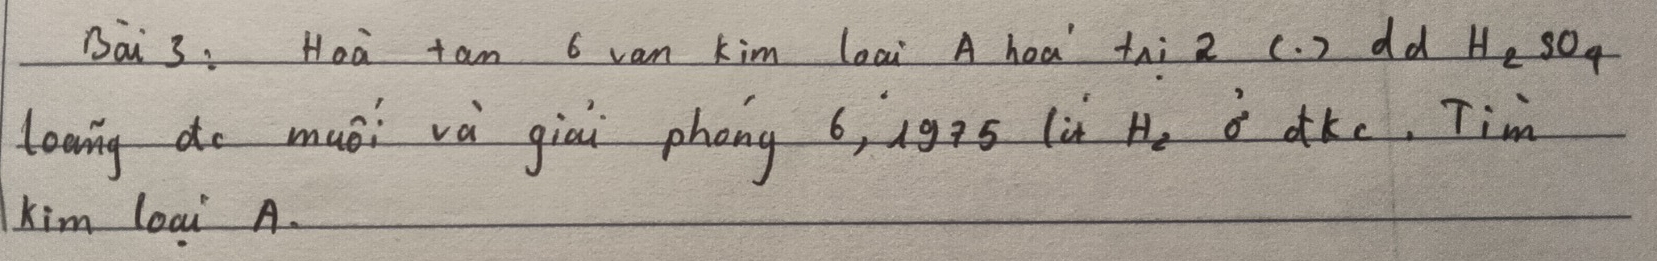 Bài 3: Hoà tan 6 van kim loại A hoá trị 2 (.) dd H₂SO₄
loãng đc muối và giải phóng 6,1975 lít H₂ ở đkc. Tìm
kim loại A.